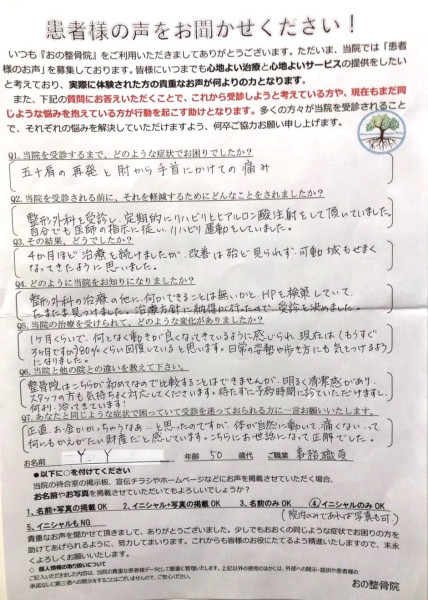 患者様の声をお聞かせください！
いつも『おの整骨院』をご利用いただきましてありがとうございます。ただいま、当院では「患者
様のお声」を募集しております。皆様にいつまでも心地よい治療と心地よいサービスの提供をしたい
と考えており、実際に体験された方の貴重なお声が何よりの力となります。
また、下記の質問にお答えいただくことで、これから受診しようと考えている方や、現在もまだ同
じような悩みを抱えている方が行動を起こす助けとなります。多くの方々が当院を受診されること
で、それぞれの悩みを解決していただけますよう、何卒ご協力お願い申し上げます。
Q1. 当院を受診するまで、どのような症状でお困りでしたか？
五十肩の再発と肘から手首にかけての痛み
Q2. 当院を受診される前に、それを軽減するためにどんなことをされましたか？
整形外科を受診し、定期的にリハビリとヒアルロン酸注射をして頂いていました。
自分でも医師の指示に従い、リハビリ運動をしていました。
Q3. その結果、どうでしたか？
4か月ほど治療を続けましたが、改善は殆ど見られず、可動域もせまく
なってきたように思いました。
Q4. どのように当院をお知りになりましたか？
整形外科の治療の他に、何かできることは無いかとHPを検索していて、
たまたま見つけました。治療方針に納得が行ったので、受診を決めました。
Q5. 当院の治療を受けられて、どのような変化がありましたか？
1ヶ月くらいで、何となく動きが良くなってきているように感じられ、現在は(もうすぐ
3ヶ月ですが)80%くらい回復していると思います。日常の姿勢や歩き方にも気をつけるよう
になりました。
Q6. 当院と他の院との違いを教えて下さい。
整骨院はこちらが初めてなので比較することはできませんが、明るく清潔感があり、
スタッフの方も気持ちよく対応してくださいます。待たずに予約時間に診ていただけますし、
何より、治ってきています!
Q7. あなたと同じような症状で困っていて受診を迷っておられる方に一言お願いいたします。
正直、お金がかっちゃうなあ…と思ったのですが、体が自然に動いて、痛くないって
何にもかえがたい財産だと感じています。こちらにお世話になって正解でした。
お名前 Y. Y 年齢 50 歳代 ご職業 事務職員
●以下に○を付けてください
当院の待合室の掲示板、宣伝チラシやホームページなどにお声を掲載させていただく場合、
お名前やお写真を掲載させていただいてもよろしいでしょうか？
1、名前+写真の掲載OK 2、イニシャル+写真の掲載OK 3、名前のみOK ④イニシャルのみOK
5、イニシャルもNG (院内のみであれば写真も可.)
貴重なお声を聞かせて頂きまして、ありがとうございました。少しでもおおくの同じような症状でお困りの方を
助けてあげられるように、努力してまいります。これからも皆様のお役にたてるよう精進いたしますので、末永
くよろしくお願いいたします。
◇ 個人情報の取り扱いについて
ご記入いただきました内容は、当院の貴重な患者様データとして厳重に管理いたします。上記以外の使用のほかには、外部への開示・提供や患者様の
承諾なしに第三者への開示をすることはございませんので、ご安心ください。
おの整骨院